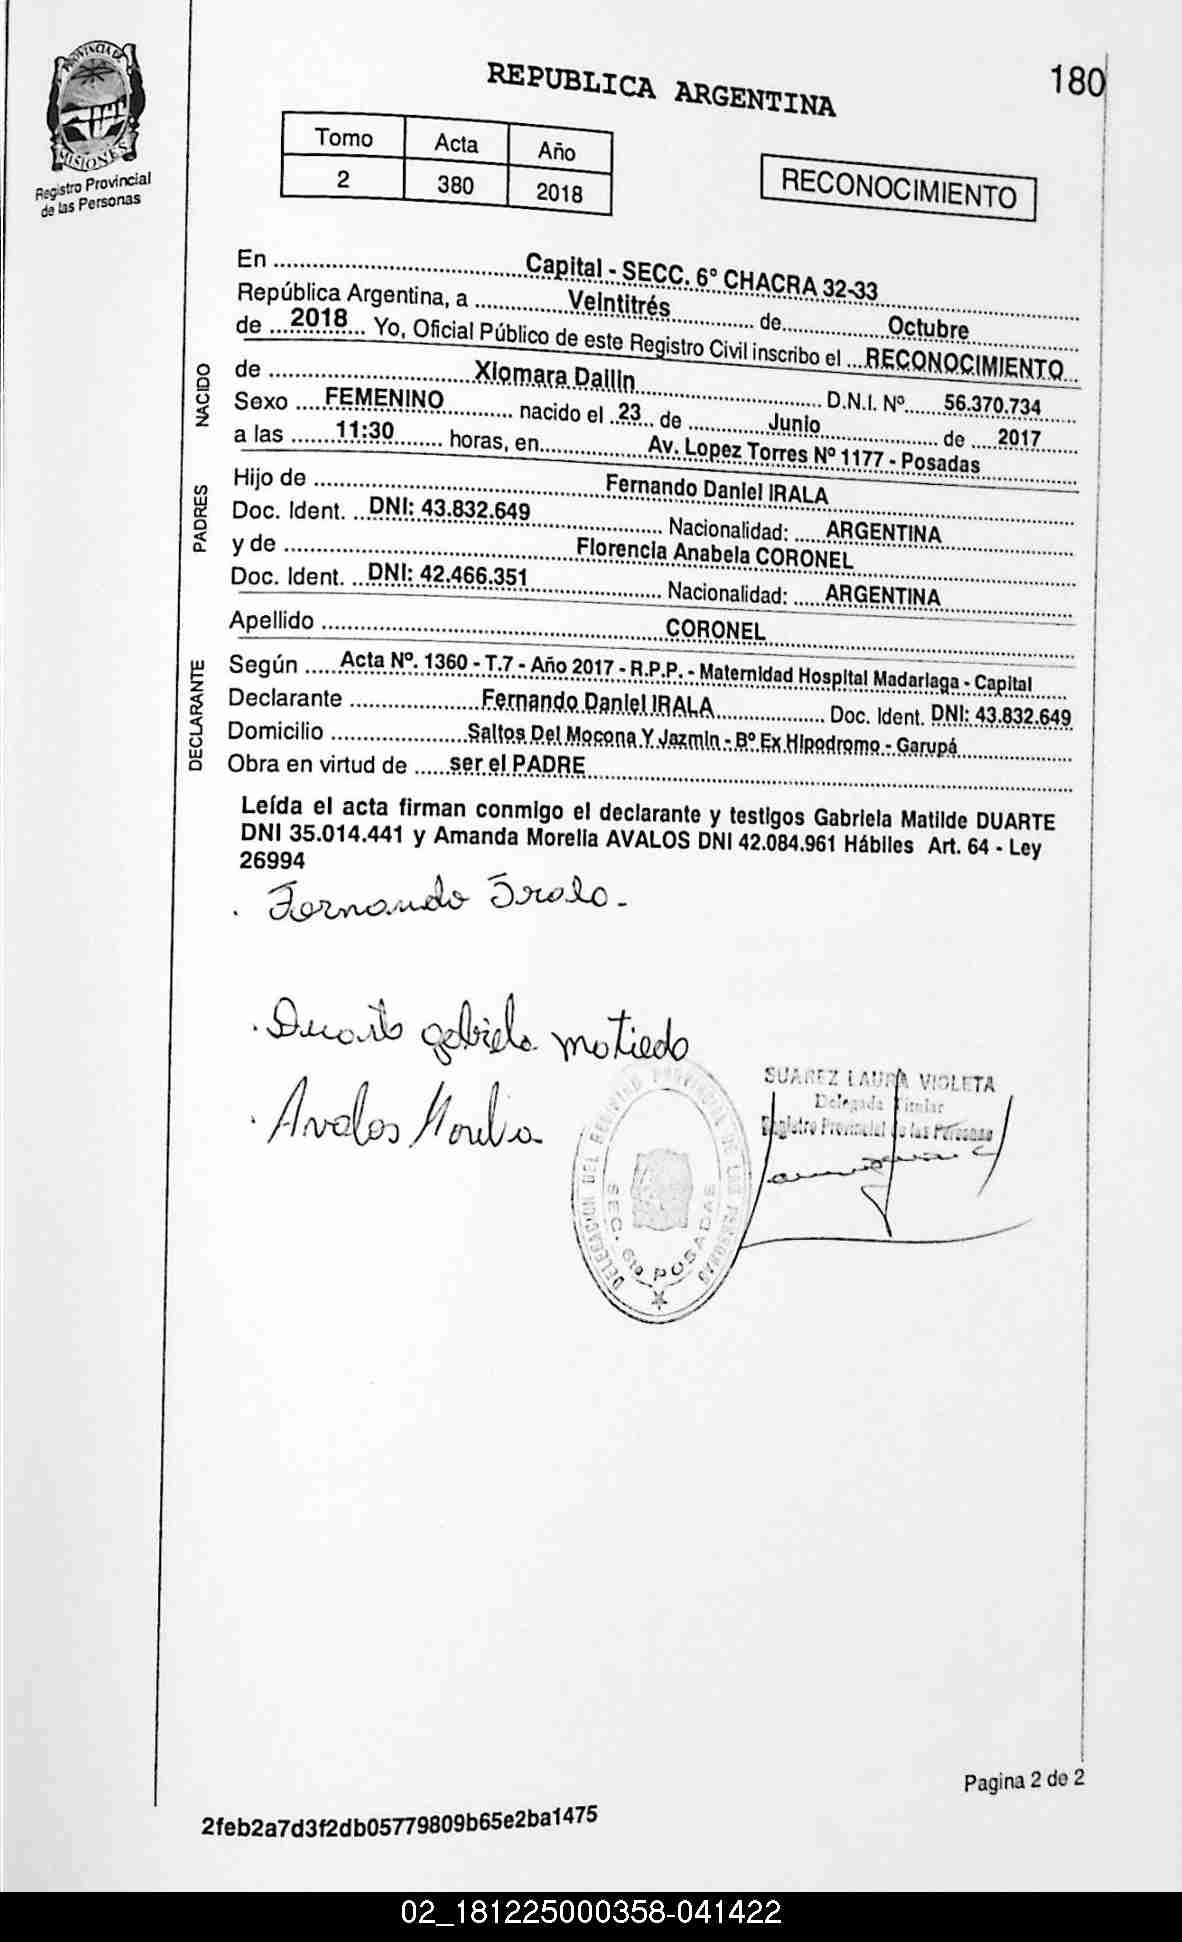 PROVINCIA DE
MISIONES
Registro Provincial
de las Personas
REPUBLICA ARGENTINA
180
Tomo Acta Año
2 380 2018
RECONOCIMIENTO
En Capital - SECC. 6° CHACRA 32-33
República Argentina, a Veintitrés de Octubre
de 2018 Yo, Oficial Público de este Registro Civil inscribo el RECONOCIMIENTO
NACIDO
de Xiomara Dailin D.N.I. Nº 56.370.734
Sexo FEMENINO nacido el 23 de Junio de 2017
a las 11:30 horas, en Av. Lopez Torres Nº 1177 - Posadas
PADRES
Hijo de Fernando Daniel IRALA
Doc. Ident. DNI: 43.832.649 Nacionalidad: ARGENTINA
y de Florencia Anabela CORONEL
Doc. Ident. DNI: 42.466.351 Nacionalidad: ARGENTINA
Apellido CORONEL
DECLARANTE
Según Acta Nº. 1360 - T.7 - Año 2017 - R.P.P. - Maternidad Hospital Madariaga - Capital
Declarante Fernando Daniel IRALA Doc. Ident. DNI: 43.832.649
Domicilio Saltos Del Mocona Y Jazmin - Bº Ex Hipodromo - Garupá
Obra en virtud de ser el PADRE
Leída el acta firman conmigo el declarante y testigos Gabriela Matilde DUARTE
DNI 35.014.441 y Amanda Morelia AVALOS DNI 42.084.961 Hábiles Art. 64 - Ley
26994
Fernando Irala
Duarte gabriela matilde
Avalos Morelia
SUAREZ LAURA VIOLETA
Delegada Titular
Registro Provincial de las Personas
DELEGACION DEL REGISTRO PROVINCIAL DE LAS PERSONAS
SEC. 6ta POSADAS
Pagina 2 de 2
2feb2a7d3f2db05779809b65e2ba1475
02_181225000358-041422